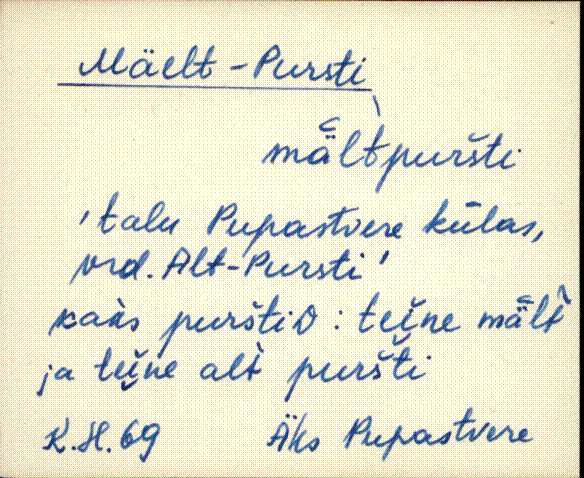 Mäelt-Pursti
mä̆lt̀puršti
'talu Pupastvere külas,
vrd. Alt-Pursti'
kaks purštiD : teine mä̆lt̀
ja teine alt̀ puršti
K.H. 69 Äks Pupastvere